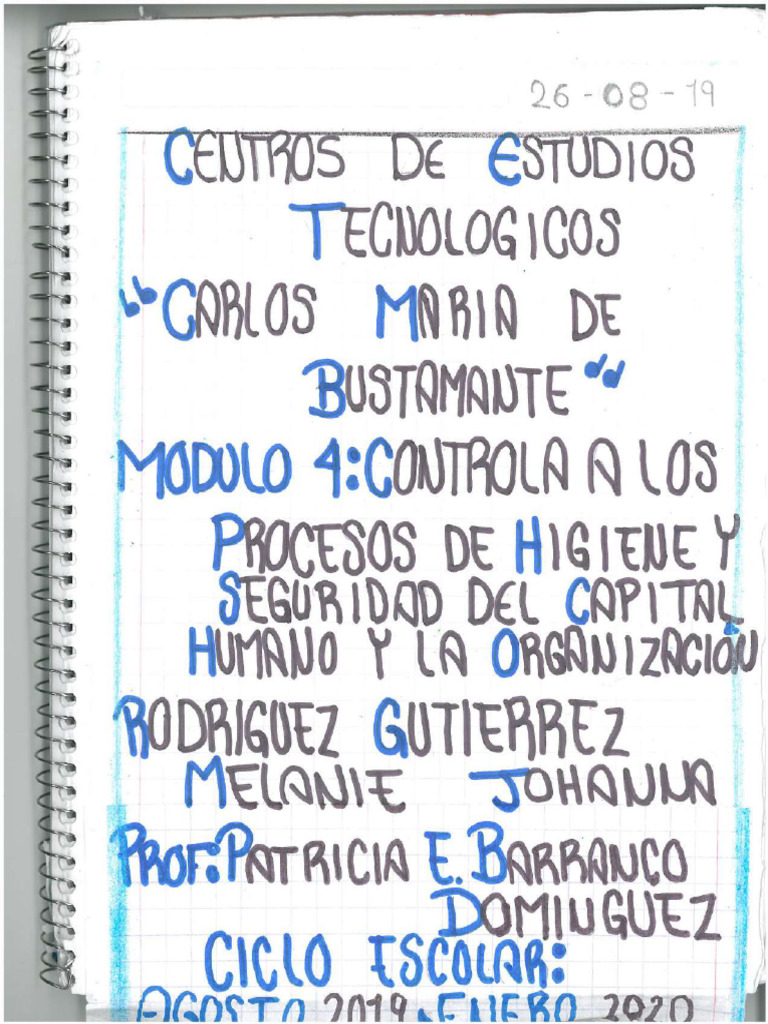 26-08-19
CENTROS DE ESTUDIOS
TECNOLOGICOS
"CARLOS MARIA DE
BUSTAMANTE"
MODULO 4:CONTROLA A LOS
PROCESOS DE HIGIENE Y
SEGURIDAD DEL CAPITAL
HUMANO Y LA ORGANIZACIÓN
RODRIGUEZ GUTIERREZ
MELANIE JOHANNA
PROF:PATRICIA E. BARRANCO
DOMINGUEZ
CICLO ESCOLAR:
AGOSTO 2019-ENERO 2020